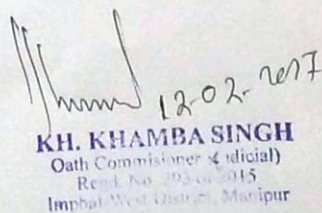 12-02-2017
KH. KHAMBA SINGH
Oath Commisioner (Judicial)
Regd. No. 293 of 2015
Imphal West District, Manipur